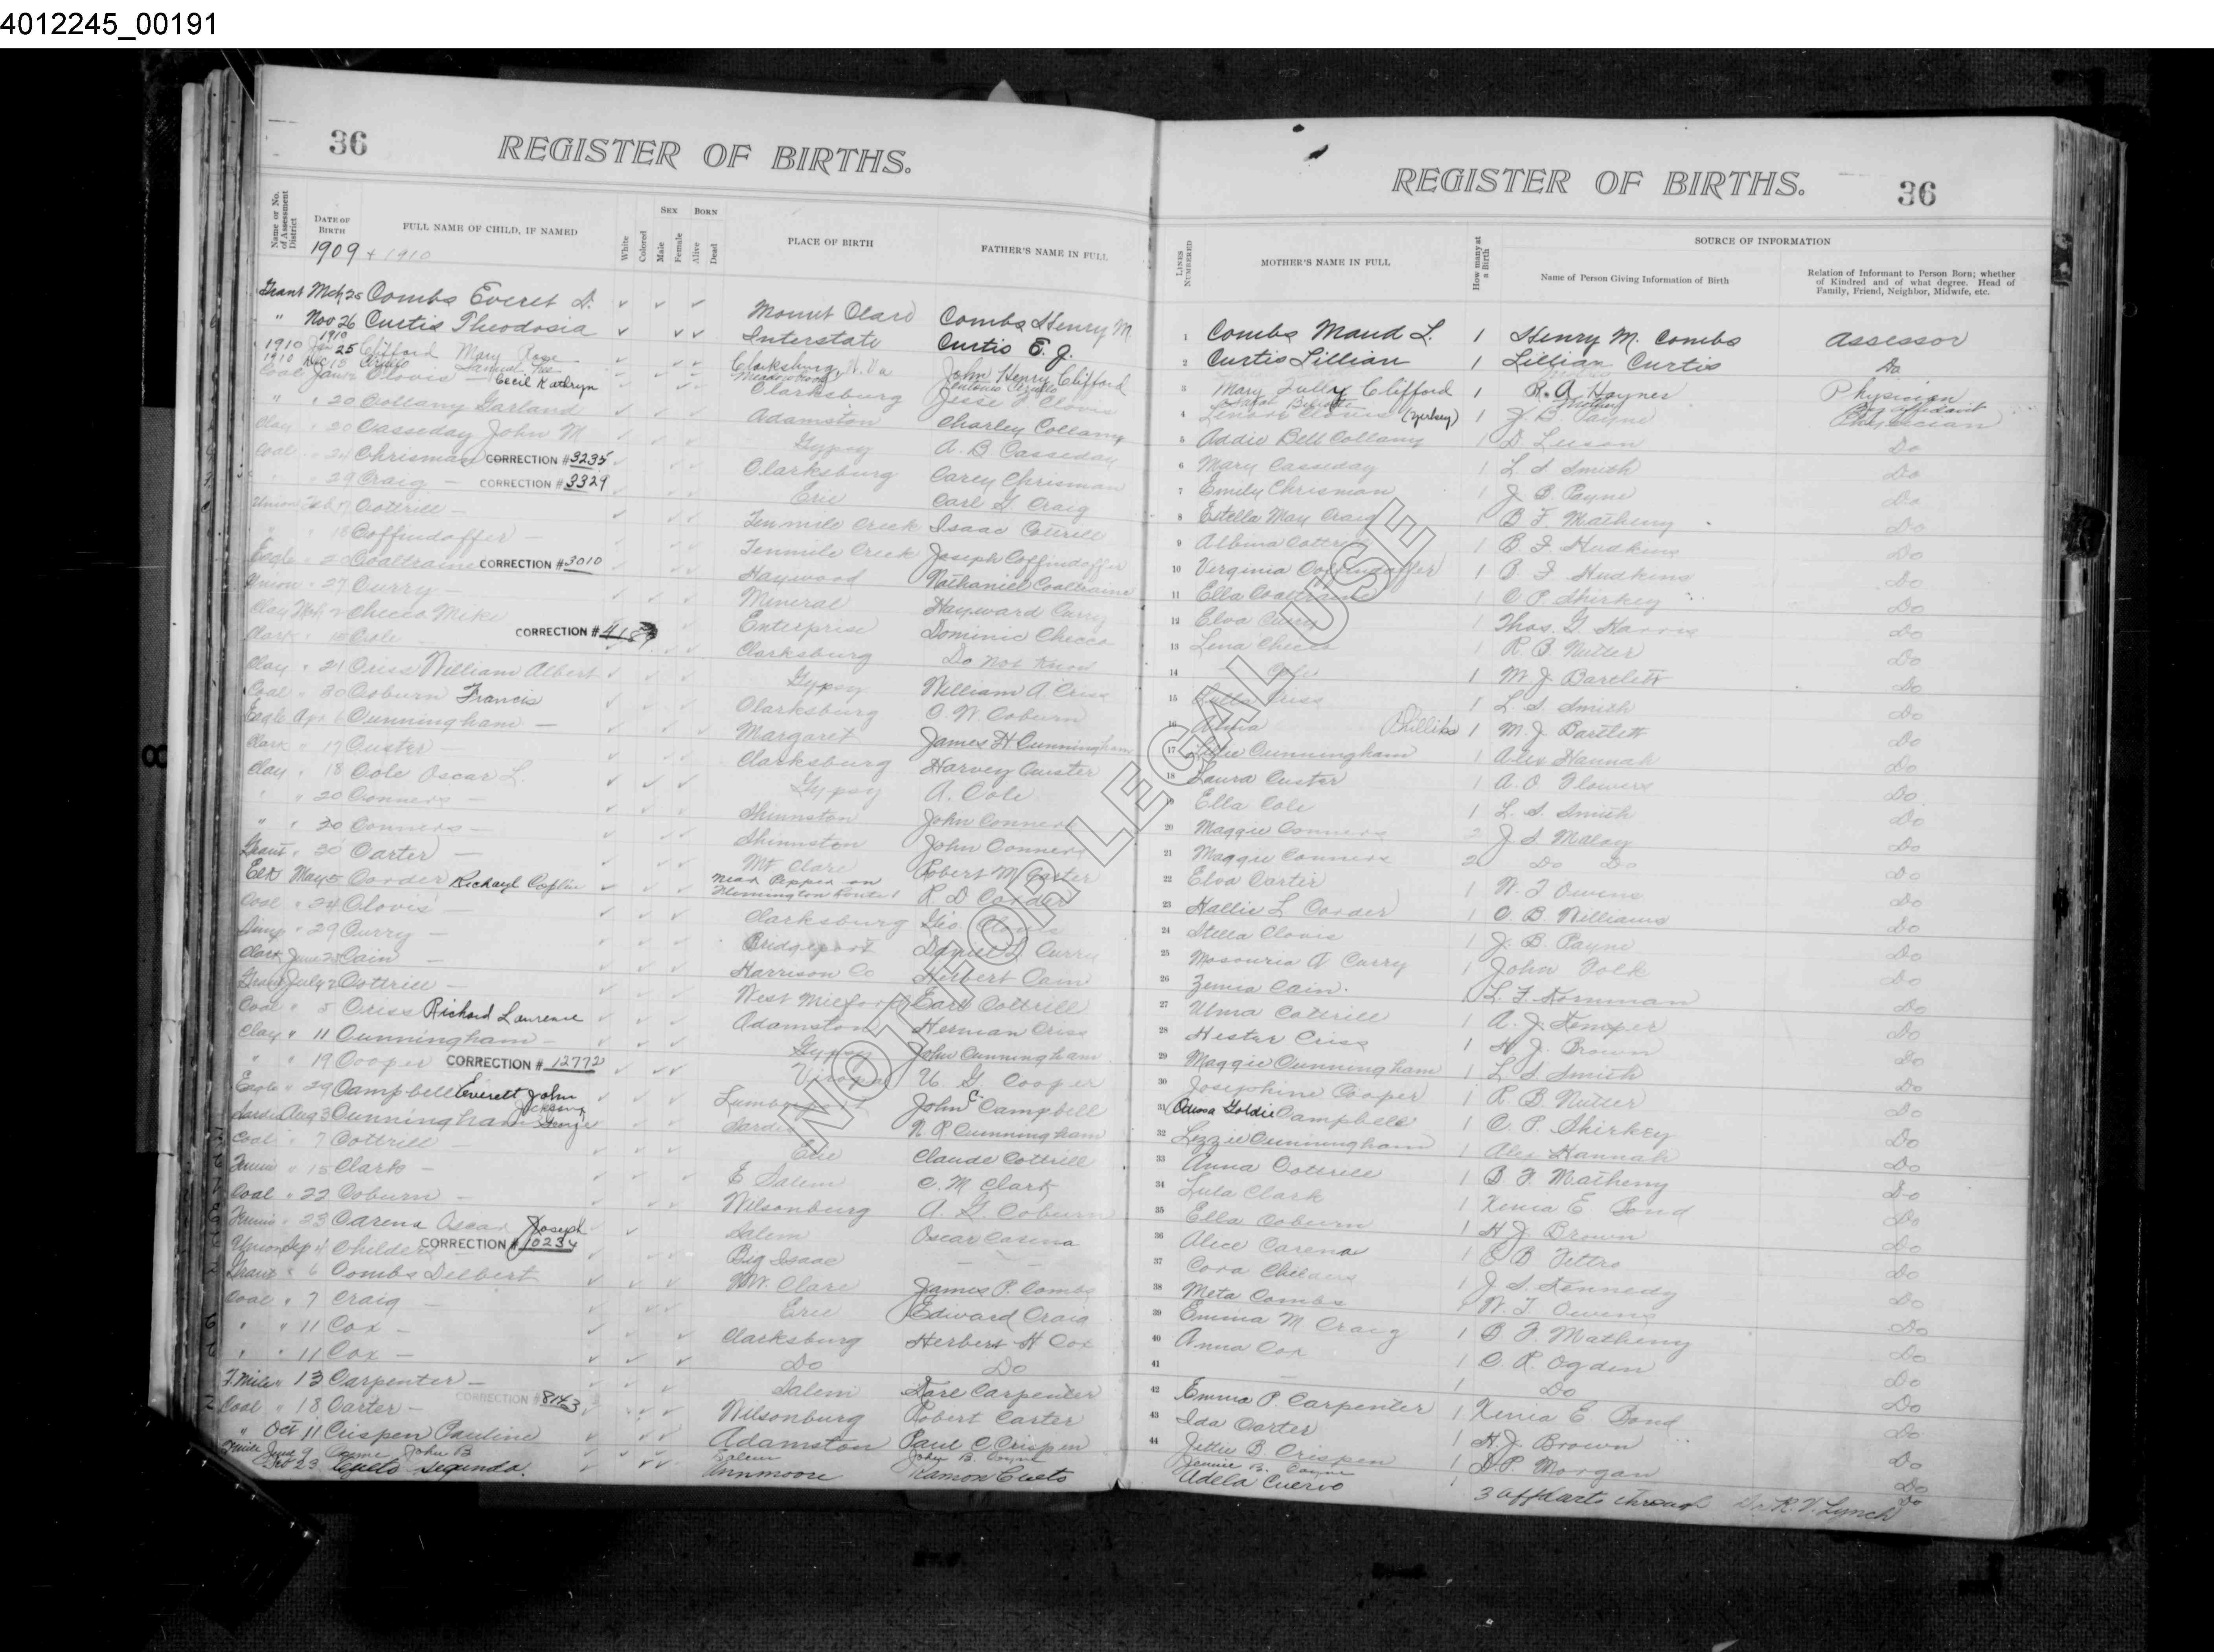 4012245_00191
36
REGISTER OF BIRTHS.
Name or No. of Assessment District
DATE OF BIRTH
FULL NAME OF CHILD, IF NAMED
White
Colored
SEX
Male
Female
BORN
Alive
Dead
PLACE OF BIRTH
FATHER'S NAME IN FULL
1909 + 1910
Grant Mch 25 Combs Everet D. Mount Clare Combs Henry M.
" Nov 26 Curtis Theodosia Interstate Curtis E. J.
1910 Jan 25 Clifford Mary Rose Clarksburg, W. Va John Henry Clifford
1910 Dec 15
Coal Jan Clovis - Cecil Kathryn Clarksburg Jesse F Clovis
" " 20 Collamy Garland Adamston Charley Collamy
Clay " 20 Casseday John M Gypsy A. B Casseday
Coal " 24 Chrisman CORRECTION #3235 Clarksburg Carey Chrisman
" " 29 Craig - CORRECTION #3329 Erie Carl G. Craig
Union Feb 17 Cottrill - Tenmile Creek Isaac Cottrill
" " 18 Coffindaffer - Tenmile Creek Joseph Coffindaffer
Eagle " 20 Coaltraine CORRECTION #3010 Haywood Nathaniel Coaltraine
Union " 27 Curry - Mineral Hayward Curry
Clay Mch 2 Checco Mike Enterprise Dominic Checco
Clark " 18 Cole - CORRECTION # Clarksburg Do not know
Clay " 21 Criss William Albert Gypsy William A Criss
Coal " 30 Coburn Francis Clarksburg O. W Coburn
Eagle Apr 6 Cunningham - Margaret James H Cunningham
Clark " 17 Custer - Clarksburg Harvey Custer
Clay " 18 Cole Oscar L. Gypsy A. Cole
" " 20 Conners - Shinnston John Conners
" " 20 Conners - Shinnston John Conners
Grant " 30 Carter - Mt Clare Robert M Carter
Elk May 5 Corder Richard Coplin near Pepper on Flemington Route 1 R D Corder
Coal " 24 Clovis - Clarksburg Geo. Clovis
Simp " 29 Curry - Bridgeport Daniel L Curry
Clark June 28 Cain - Harrison Co Herbert Cain
Grant July 2 Cottrill - West Milford Earl Cottrill
Coal " 5 Criss Richard Laurence Adamston Herman Criss
Clay " 11 Cunningham - Gypsy John Cunningham
" " 19 Cooper CORRECTION # 12772 Viropa U. G Cooper
Eagle " 29 Campbell Everett John Lumberport John C. Campbell
Sardis Aug 3 Cunningham Sardis N. R Cunningham
Coal " 7 Cottrill - Erie Claude Cottrill
Tenmile " 15 Clark - E Salem C. M Clark
Coal " 22 Coburn - Wilsonburg A. G. Coburn
Tenmile " 23 Carena Oscar Joseph Salem Oscar Carena
Union Sep 4 Childers CORRECTION # 10234 Big Isaac - -
Grant " 6 Combs Delbert Mt. Clare James P. Combs
Coal " 7 Craig - Erie Edward Craig
" " 11 Cox - Clarksburg Herbert H Cox
" " 11 Cox - Do Do
T. Mile " 13 Carpenter - Salem Dare Carpenter
Coal " 18 Carter - CORRECTION #8143 Wilsonburg Robert Carter
" Oct 11 Crispen Pauline Adamston Paul C Crispen
Tmile June 9 Coyne John B Salem John B. Coyne
Dec 23 Cueto Segundo. Annmoore Ramon Cueto
REGISTER OF BIRTHS.
36
LINES NUMBERED
MOTHER'S NAME IN FULL
How many at a Birth
SOURCE OF INFORMATION
Name of Person Giving Information of Birth
Relation of Informant to Person Born; whether of Kindred and of what degree. Head of Family, Friend, Neighbor, Midwife, etc.
1 Combs Maud L. 1 Henry M. Combs Assessor
2 Curtis Lillian 1 Lillian Curtis Do
3 Mary Tully Clifford 1 R. A. Haynes Physician
Mother By affidavit
4 Lenora Clovis (Zerkey) 1 J. B Payne Physician
5 Addie Bell Collamy 1 D. Luson Do
6 Mary Casseday 1 L. S Smith Do
7 Emily Chrisman 1 J B Payne Do
8 Estella May Craig 1 B F. Matheny Do
9 Albina Cottrill 1 B. F Hudkins Do
10 Virginia Coffindaffer 1 B F Hudkins Do
11 Ella Coaltraine 1 C P. Shirkey Do
12 Elva Curry 1 Thos. G Harris Do
13 Lena Checco 1 R B. Nutter Do
14 Cole 1 M. J. Bartlett Do
15 Criss 1 L. S. Smith Do
16 Alma Phillips 1 M. J. Bartlett Do
17 Cunningham 1 Alex Hannah Do
18 Laura Custer 1 A. O Flowers Do
19 Ella Cole 1 L. S. Smith Do
20 Maggie Conners 2 J S Maloy Do
21 Maggie Conners 2 Do Do Do
22 Elva Carter 1 W. T Owens Do
23 Hallie L Corder 1 C. B. Williams Do
24 Stella Clovis 1 J. B. Payne Do
25 Mosouria A Curry 1 John Folk Do
26 Zemra Cain. 1 L. F. Kornman Do
27 Ulma Cottrill 1 A. J. Kemper Do
28 Hester Criss 1 H. J. Brown Do
29 Maggie Cunningham 1 L. S Smith Do
30 Josephine Cooper 1 R. B Nutter Do
31 Odessa Goldie Campbell 1 C. P. Shirkey Do
32 Lizzie Cunningham 1 Alex Hannah Do
33 Anna Cottrill 1 B F. Matheny Do
34 Lula Clark 1 Xenia E Bond Do
35 Ella Coburn 1 H J. Brown Do
36 Alice Carena 1 C B Fettro Do
37 Cora Childers 1 J. S. Kennedy Do
38 Meta Combs 1 W. T. Owens Do
39 Emma M. Craig 1 B F. Matheny Do
40 Anna Cox 1 C. R. Ogden Do
41 - 1 Do Do
42 Emma P. Carpenter 1 Xenia E Bond Do
43 Ida Carter 1 H. J. Brown Do
44 Jettie B Crispen 1 D. P. Morgan Do
Jennie B. Coyne Do
Adela Cuervo 1 3 affidavits through Dr R. V. Lynch
NOT FOR LEGAL USE